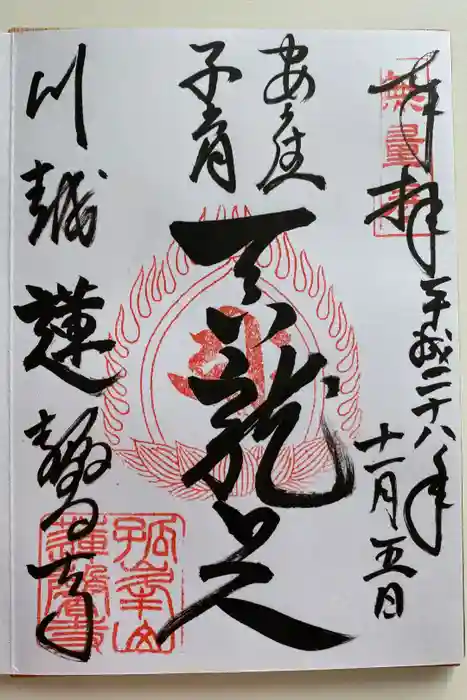 奉拝
平成二十八年
十一月五日
無量寿
安産
子育
呑龍上人
川越 蓮馨寺
孤峯山
蓮馨寺